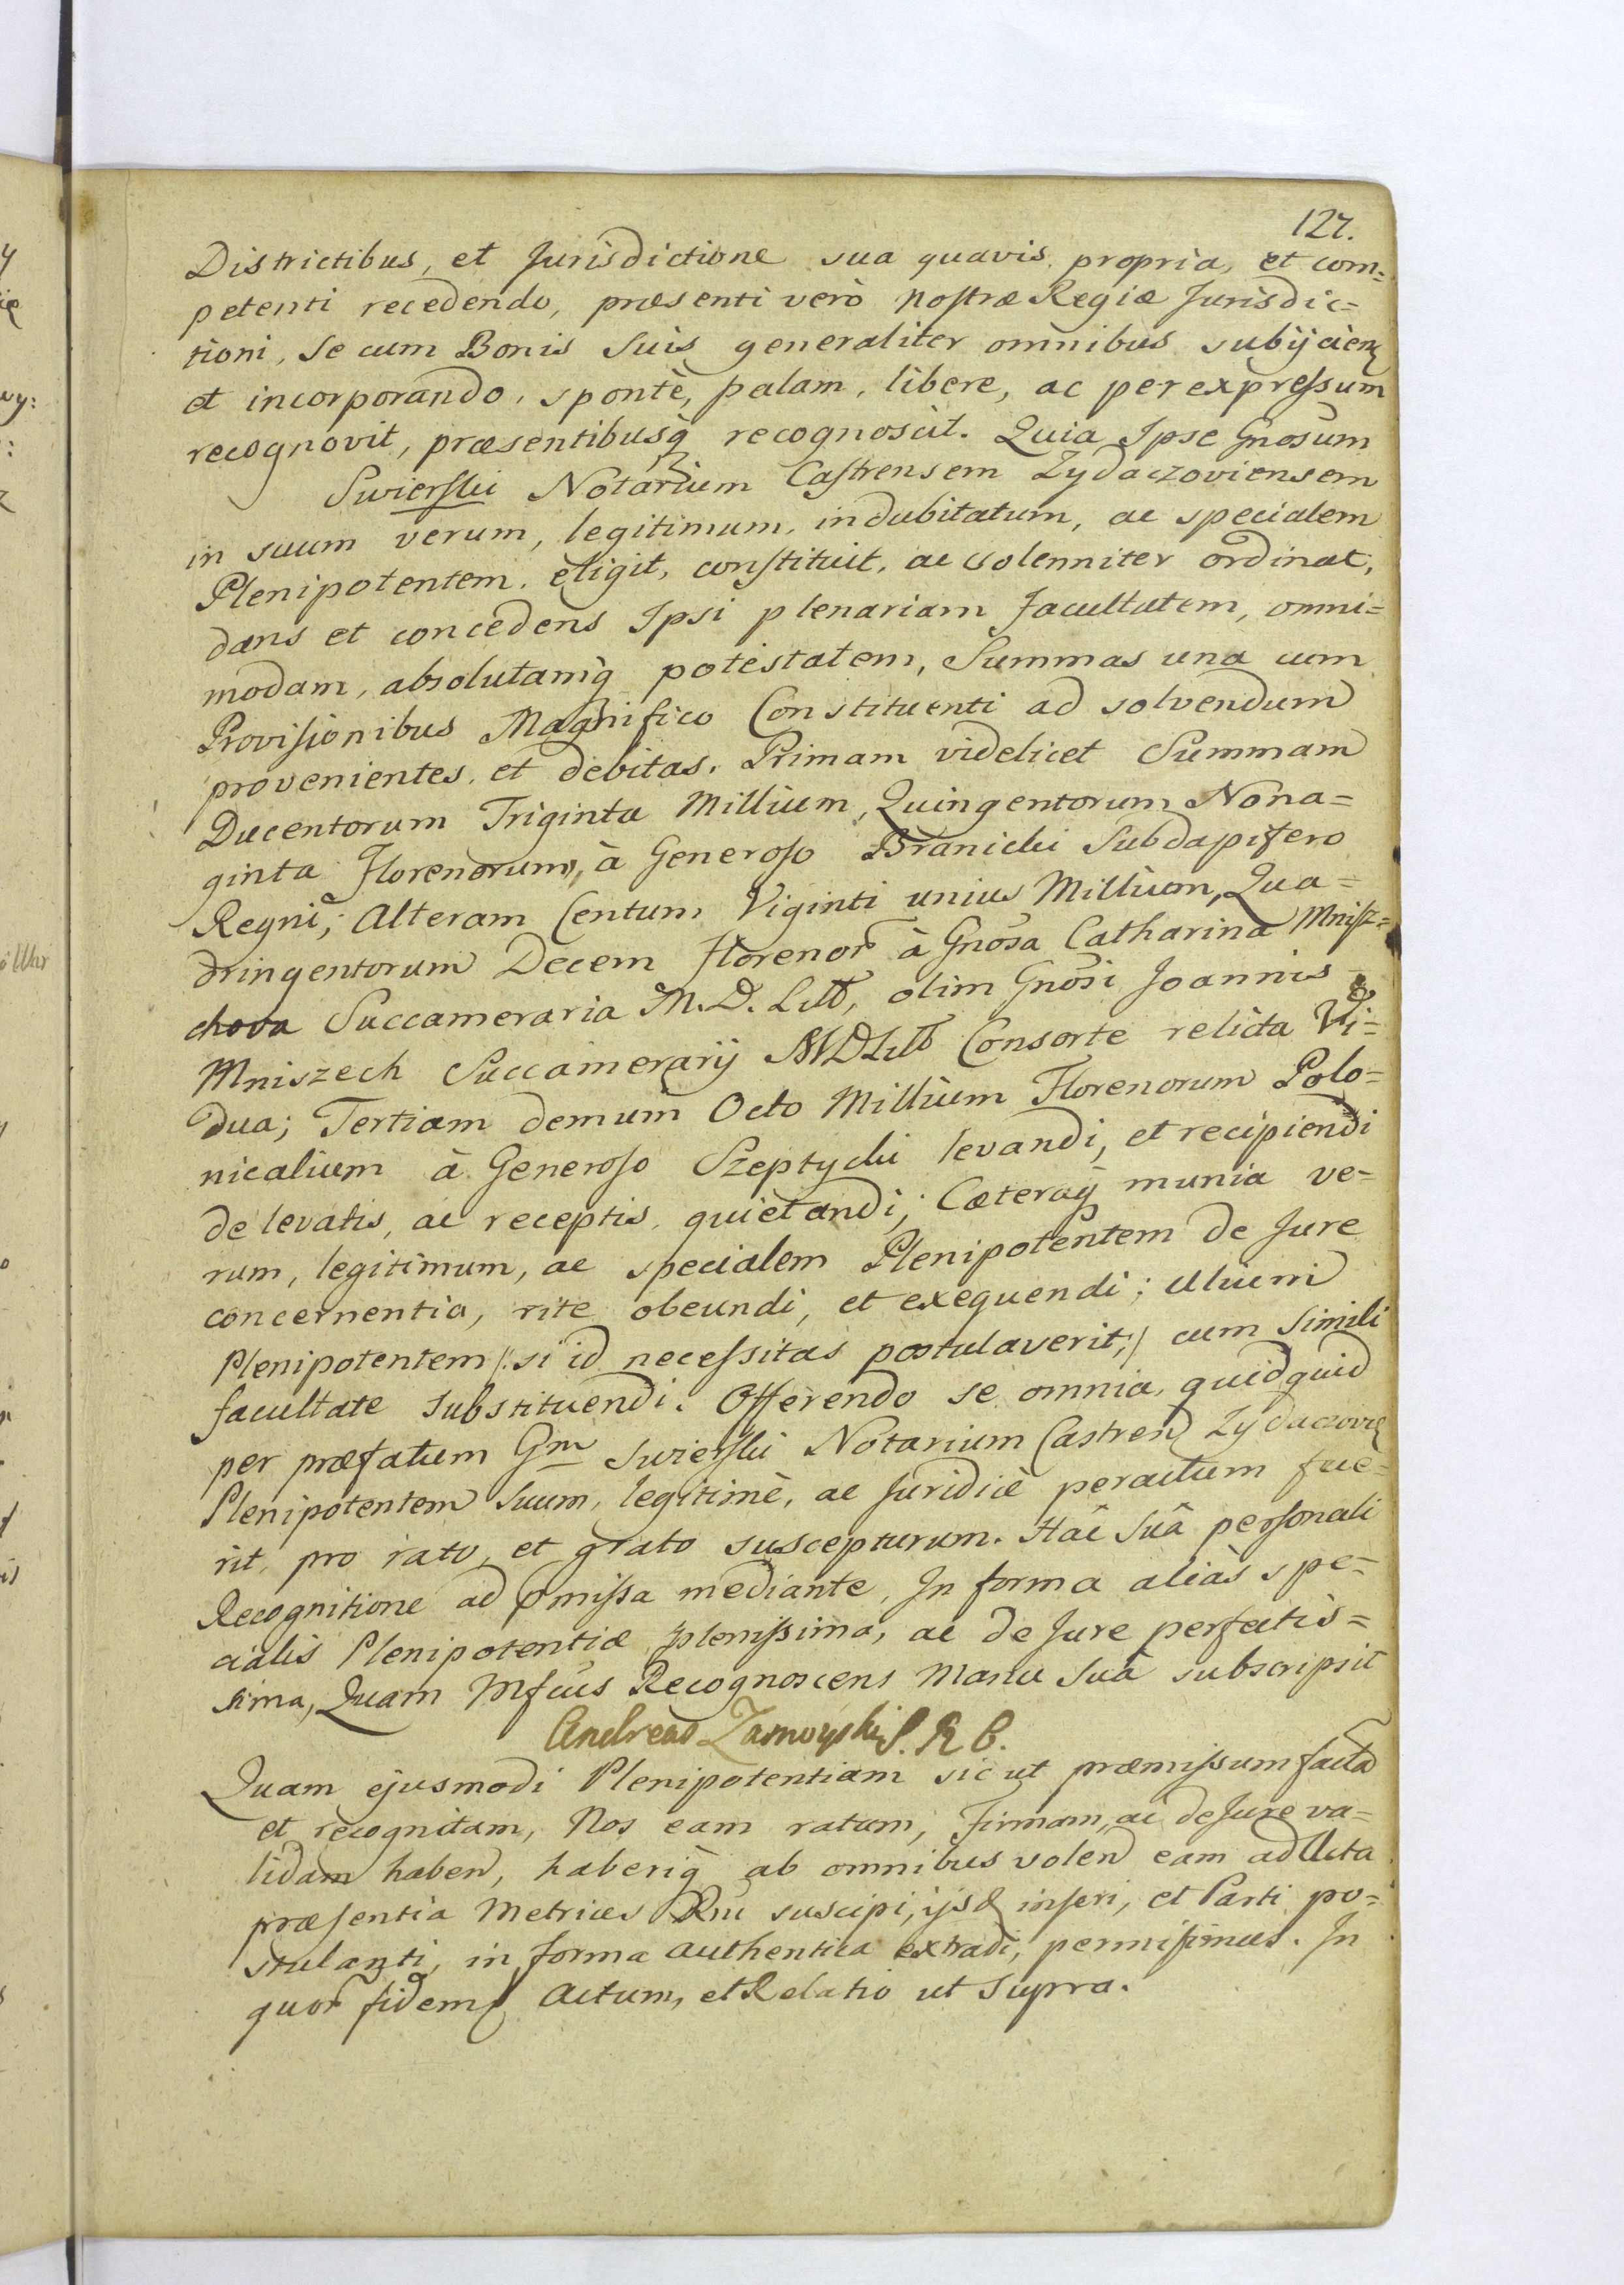 127.
Districtibus, et Jurisdictione sua quavis propria, et com=
petenti recedendo, præsenti verò nostræ Regiæ Jurisdic=
tioni, Se cum Bonis Suis generaliter omnibus subijcien
et incorporando, spontè, palam, libere, ac per expressum
recognovit, præsentibusq̃ recognoscit. Quia Ipse Gnosum
Swierski Notarium Castrensem Zydaczoviensem
in suum verum, legitimum, indubitatum, ac specialem
Plenipotentem, eligit, constituit, ac solenniter ordinat,
dans et concedens Ipsi plenariam facultatem, omni=
modam, absolutamq̃ potestatem, Summas una cum
Provisionibus Magnifico Constituenti ad solvendum
provenientes, et debitas. Primam videlicet Summam
Ducentorum Triginta Millium, Quingentorum Nona=
ginta Florenorum, à Generoso Branicki Subdapifero
Regni; Alteram Centum Viginti unius Millium, Qua=
dringentorum Decem Florenor à Gnosa Catharina Mnisz=
chova Succameraria M.D. Litt, olim Gnosi Joannis
Mniszech Succamerarij MDLitt Consorte relicta Vi=
dua; Tertiam demum Octo Millium Florenorum Polo=
nicalium à Generoso Szeptycki levandi, et recipiendi
de levatis, ac receptis, quietandi; Cæteraq̃ munia ve=
rum, legitimum, ac specialem Plenipotentem de Jure
concernentia, rite obeundi, et exequendi; Alium
Plenipotentem /: si id necessitas postulaverit :/ cum simili
facultate substituendi. Offerendo se omnia, quidquid
per præfatum Gm Swierski Notarium Castren Zydaczovien
Plenipotentem Suum, legitimè, ac Juridicè peractum fue=
rit, pro rato, et grato suscepturum. Hâc Suâ personali
Recognitione ad pmissa mediante, In forma aliàs spe=
cialis Plenipotentiæ plenissima, ac de Jure perfectis=
sima, Quam Mfcus Recognoscens Manu Suâ subscripsit
Andreas Zamoyski S. R C.
Quam ejusmodi Plenipotentiam sic ut præmissum facta
et recognitam, Nos eam ratam, firmam, ac de Jure va=
lidam haben, haberiq̃ ab omnibus volen eam ad Acta
præsentia Metrices Rni suscipi, ijsq inseri, et Parti po=
stulanti, in forma authentica extradi, permisimus. In
quor fidem Actum, et Relatio ut supra.